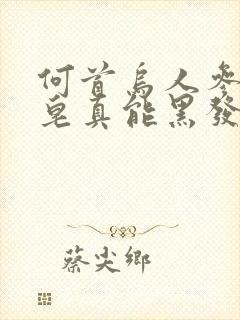 何首烏人參
皂真能黑發
蔡尖鄉